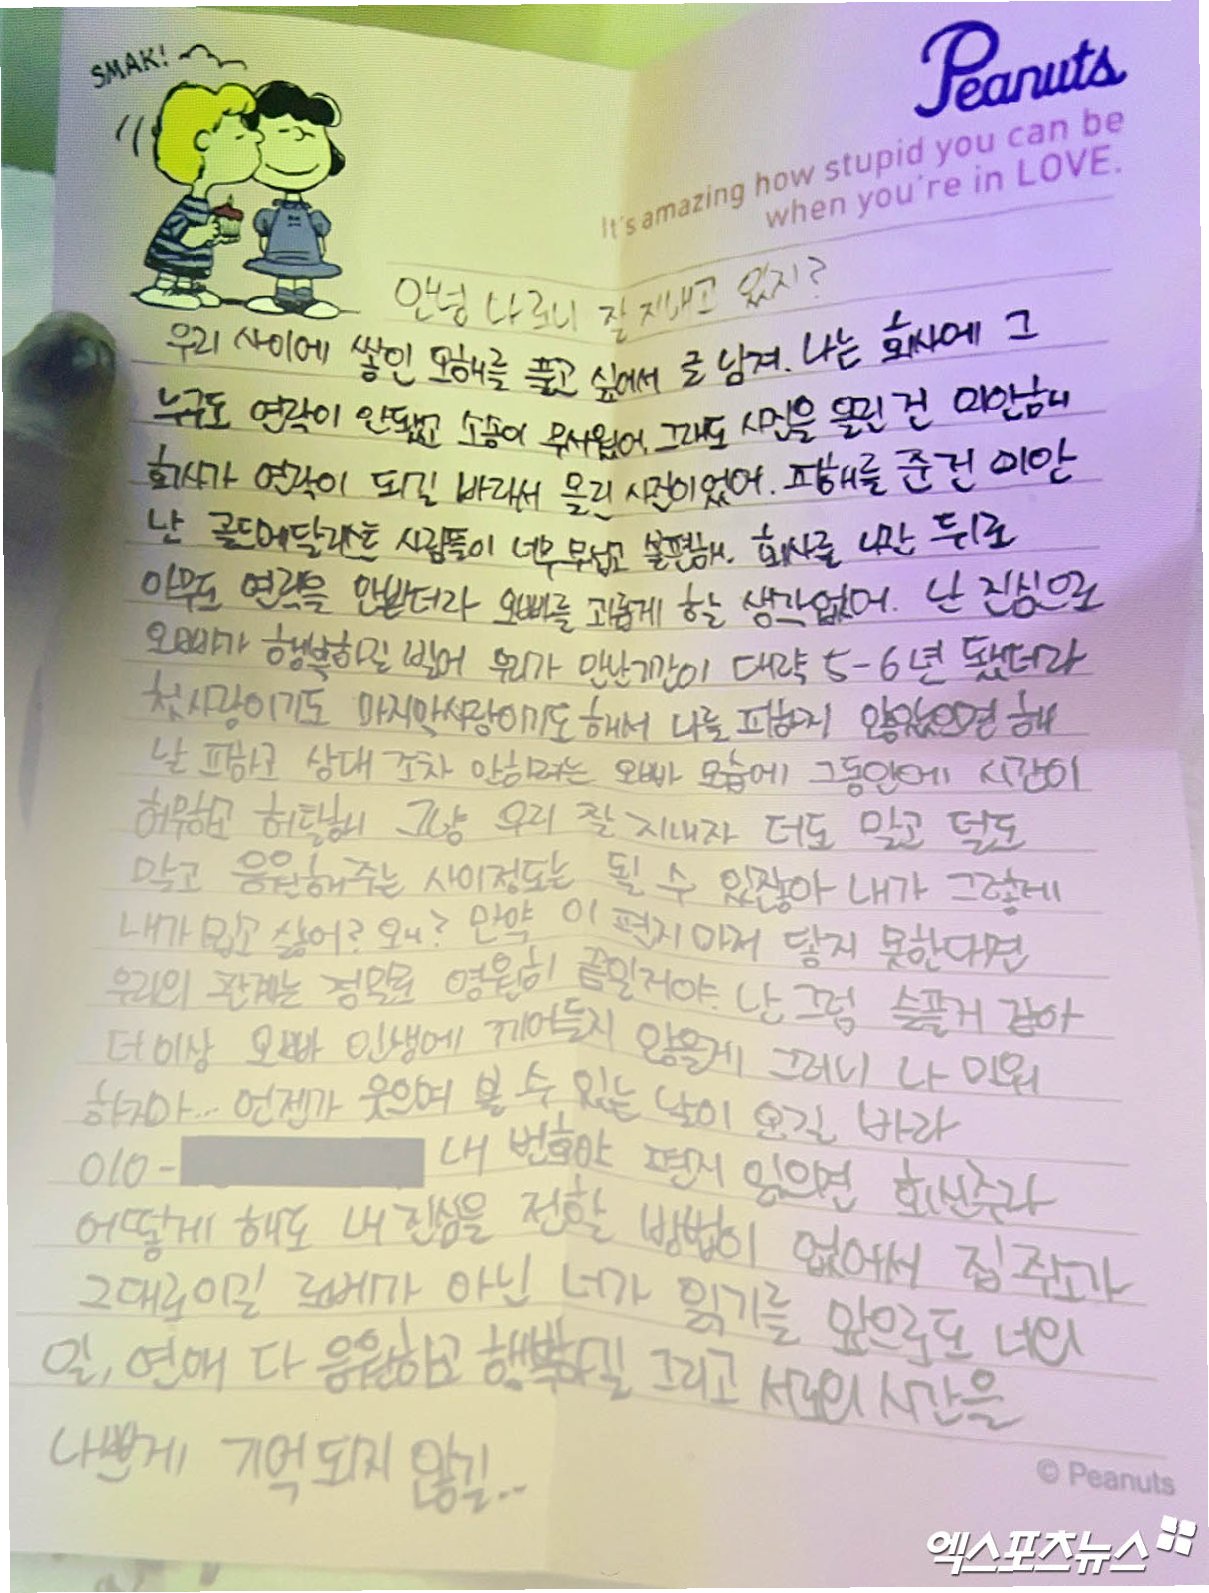 SMAK!
Peanuts
It's amazing how stupid you can be
when you're in LOVE.
안녕 나 로니 잘 지내고 있지?
우리 사이에 쌓인 오해를 풀고 싶어서 글 남겨. 나는 회사에 그
누구도 연락이 안됐고 소송이 무서웠어. 그래도 사진을 올린 건 미안해
회사가 연락이 되길 바래서 올린 사진이었어. 피해를 준건 미안
난 골드메달리스트 사람들이 너무 무섭고 불편해. 회사를 나간 뒤로
아무도 연락을 안받더라 오빠를 괴롭게 할 생각없어. 난 진심으로
오빠가 행복하길 빌어 우리가 만난기간이 대략 5-6년 됐더라
첫사랑이기도 마지막사랑이기도 해서 나를 피하지 않았으면 해
날 피하고 상대 조차 안하려는 오빠 모습에 그동안에 시간이
허무하고 허탈해 그냥 우리 잘 지내자 더도 말고 덜도
말고 응원해주는 사이정도는 될 수 있잖아 내가 그렇게
내가 밉고 싫어? 왜? 만약 이 편지마저 닿지 못한다면
우리의 관계는 정말로 영원히 끝일거야. 난 그럼 슬플거 같아
더이상 오빠 인생에 끼어들지 않을게 그러니 나 미워
하지마... 언젠가 웃으며 볼 수 있는 날이 오길 바라
010- 내 번호야 편지 읽으면 회신주라
어떻게 해도 내 진심을 전할 방법이 없어서 집 주소가
그대로이길 로베가 아닌 너가 읽기를 앞으로도 너의
일, 연애 다 응원하고 행복하길 그리고 서로의 시간을
나쁘게 기억되지 않길...
© Peanuts
엑스포츠뉴스